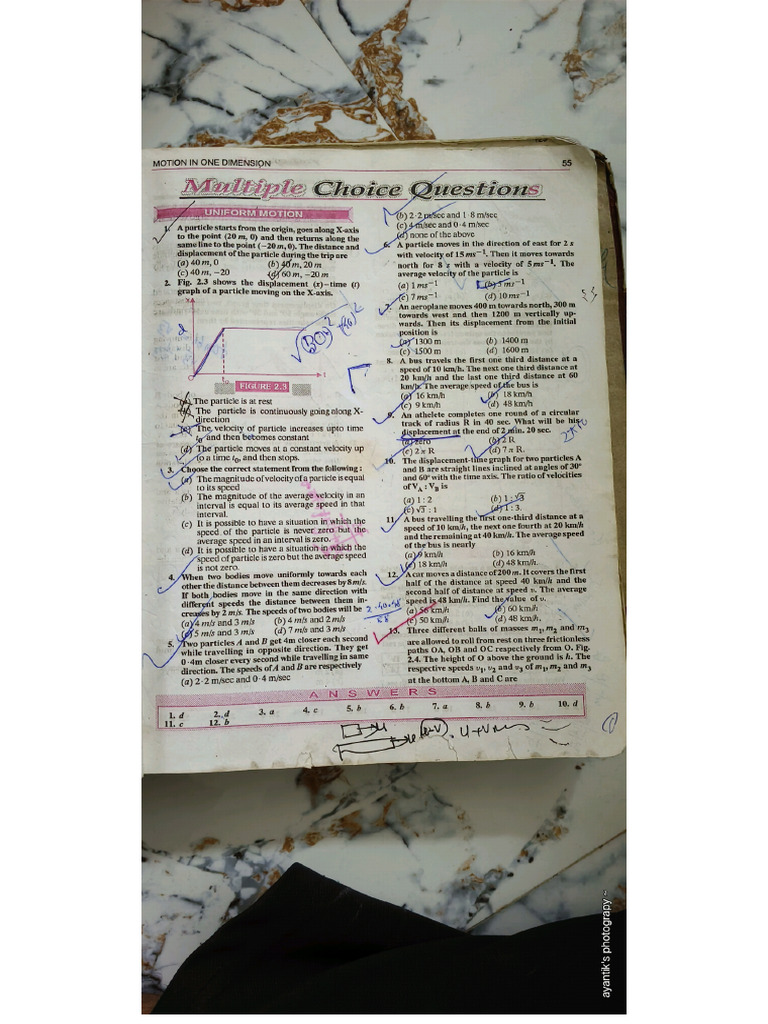 MOTION IN ONE DIMENSION
55
Multiple Choice Questions
UNIFORM MOTION
1. A particle starts from the origin, goes along X-axis
to the point (20 m, 0) and then returns along the
same line to the point (−20 m, 0). The distance and
displacement of the particle during the trip are
(a) 40 m, 0 (b) 40 m, 20 m
(c) 40 m, −20 (d) 60 m, −20 m
2. Fig. 2.3 shows the displacement (x)−time (t)
graph of a particle moving on the X-axis.
x
t₀
t
FIGURE 2.3
(a) The particle is at rest
(b) The particle is continuously going along X-
direction
(c) The velocity of particle increases upto time
t₀ and then becomes constant
(d) The particle moves at a constant velocity up
to a time t₀, and then stops.
3. Choose the correct statement from the following :
(a) The magnitude of velocity of a particle is equal
to its speed
(b) The magnitude of the average velocity in an
interval is equal to its average speed in that
interval.
(c) It is possible to have a situation in which the
speed of the particle is never zero but the
average speed in an interval is zero.
(d) It is possible to have a situation in which the
speed of particle is zero but the average speed
is not zero.
4. When two bodies move uniformly towards each
other the distance between them decreases by 8 m/s.
If both bodies move in the same direction with
different speeds the distance between them in-
creases by 2 m/s. The speeds of two bodies will be
(a) 4 m/s and 3 m/s (b) 4 m/s and 2 m/s
(c) 5 m/s and 3 m/s (d) 7 m/s and 3 m/s
5. Two particles A and B get 4m closer each second
while travelling in opposite direction. They get
0·4m closer every second while travelling in same
direction. The speeds of A and B are respectively
(a) 2·2 m/sec and 0·4 m/sec
(b) 2·2 m/sec and 1·8 m/sec
(c) 4 m/sec and 0·4 m/sec
(d) none of the above
6. A particle moves in the direction of east for 2 s
with velocity of 15 ms⁻¹. Then it moves towards
north for 8 s with a velocity of 5 ms⁻¹. The
average velocity of the particle is
(a) 1 ms⁻¹ (b) 5 ms⁻¹
(c) 7 ms⁻¹ (d) 10 ms⁻¹
7. An aeroplane moves 400 m towards north, 300 m
towards west and then 1200 m vertically up-
wards. Then its displacement from the initial
position is
(a) 1300 m (b) 1400 m
(c) 1500 m (d) 1600 m
8. A bus travels the first one third distance at a
speed of 10 km/h. The next one third distance at
20 km/h and the last one third distance at 60
km/h. The average speed of the bus is
(a) 16 km/h (b) 18 km/h
(c) 9 km/h (d) 48 km/h
9. An athelete completes one round of a circular
track of radius R in 40 sec. What will be his
displacement at the end of 2 min. 20 sec.
(a) zero (b) 2 R
(c) 2 π R (d) 7 π R.
10. The displacement-time graph for two particles A
and B are straight lines inclined at angles of 30°
and 60° with the time axis. The ratio of velocities
of V_A : V_B is
(a) 1 : 2 (b) 1 : √3
(c) √3 : 1 (d) 1 : 3.
11. A bus travelling the first one-third distance at a
speed of 10 km/h, the next one fourth at 20 km/h
and the remaining at 40 km/h. The average speed
of the bus is nearly
(a) 9 km/h (b) 16 km/h
(c) 18 km/h (d) 48 km/h.
12. A car moves a distance of 200 m. It covers the first
half of the distance at speed 40 km/h and the
second half of distance at speed v. The average
speed is 48 km/h. Find the value of v.
(a) 56 km/h (b) 60 km/h
(c) 50 km/h (d) 48 km/h.
13. Three different balls of masses m₁, m₂ and m₃
are allowed to roll from rest on three frictionless
paths OA, OB and OC respectively from O. Fig.
2.4. The height of O above the ground is h. The
respective speeds v₁, v₂ and v₃ of m₁, m₂ and m₃
at the bottom A, B and C are
ANSWERS
1. d 2. d 3. a 4. c 5. b 6. b 7. a 8. b 9. b 10. d
11. c 12. b
ayantik's photograpy ~